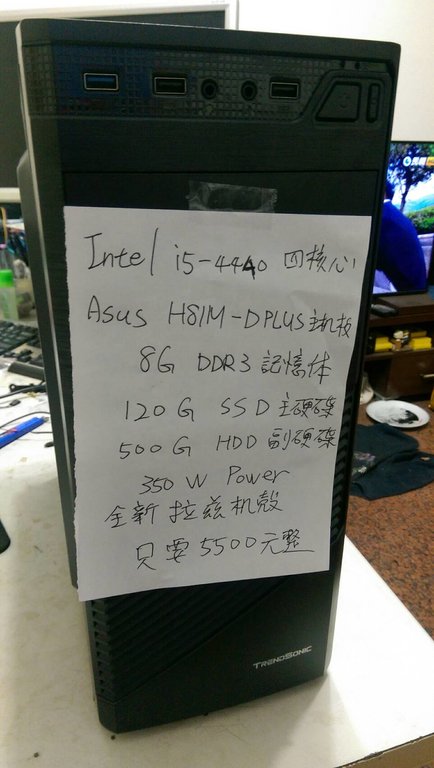 Intel i5-4440 四核心
Asus H81M-DPLUS主机板
8G DDR3 記憶体
120G SSD 主硬碟
500G HDD 副硬碟
350W Power
全新 拉兹机殼
只要 5500元整
TRENDSONIC